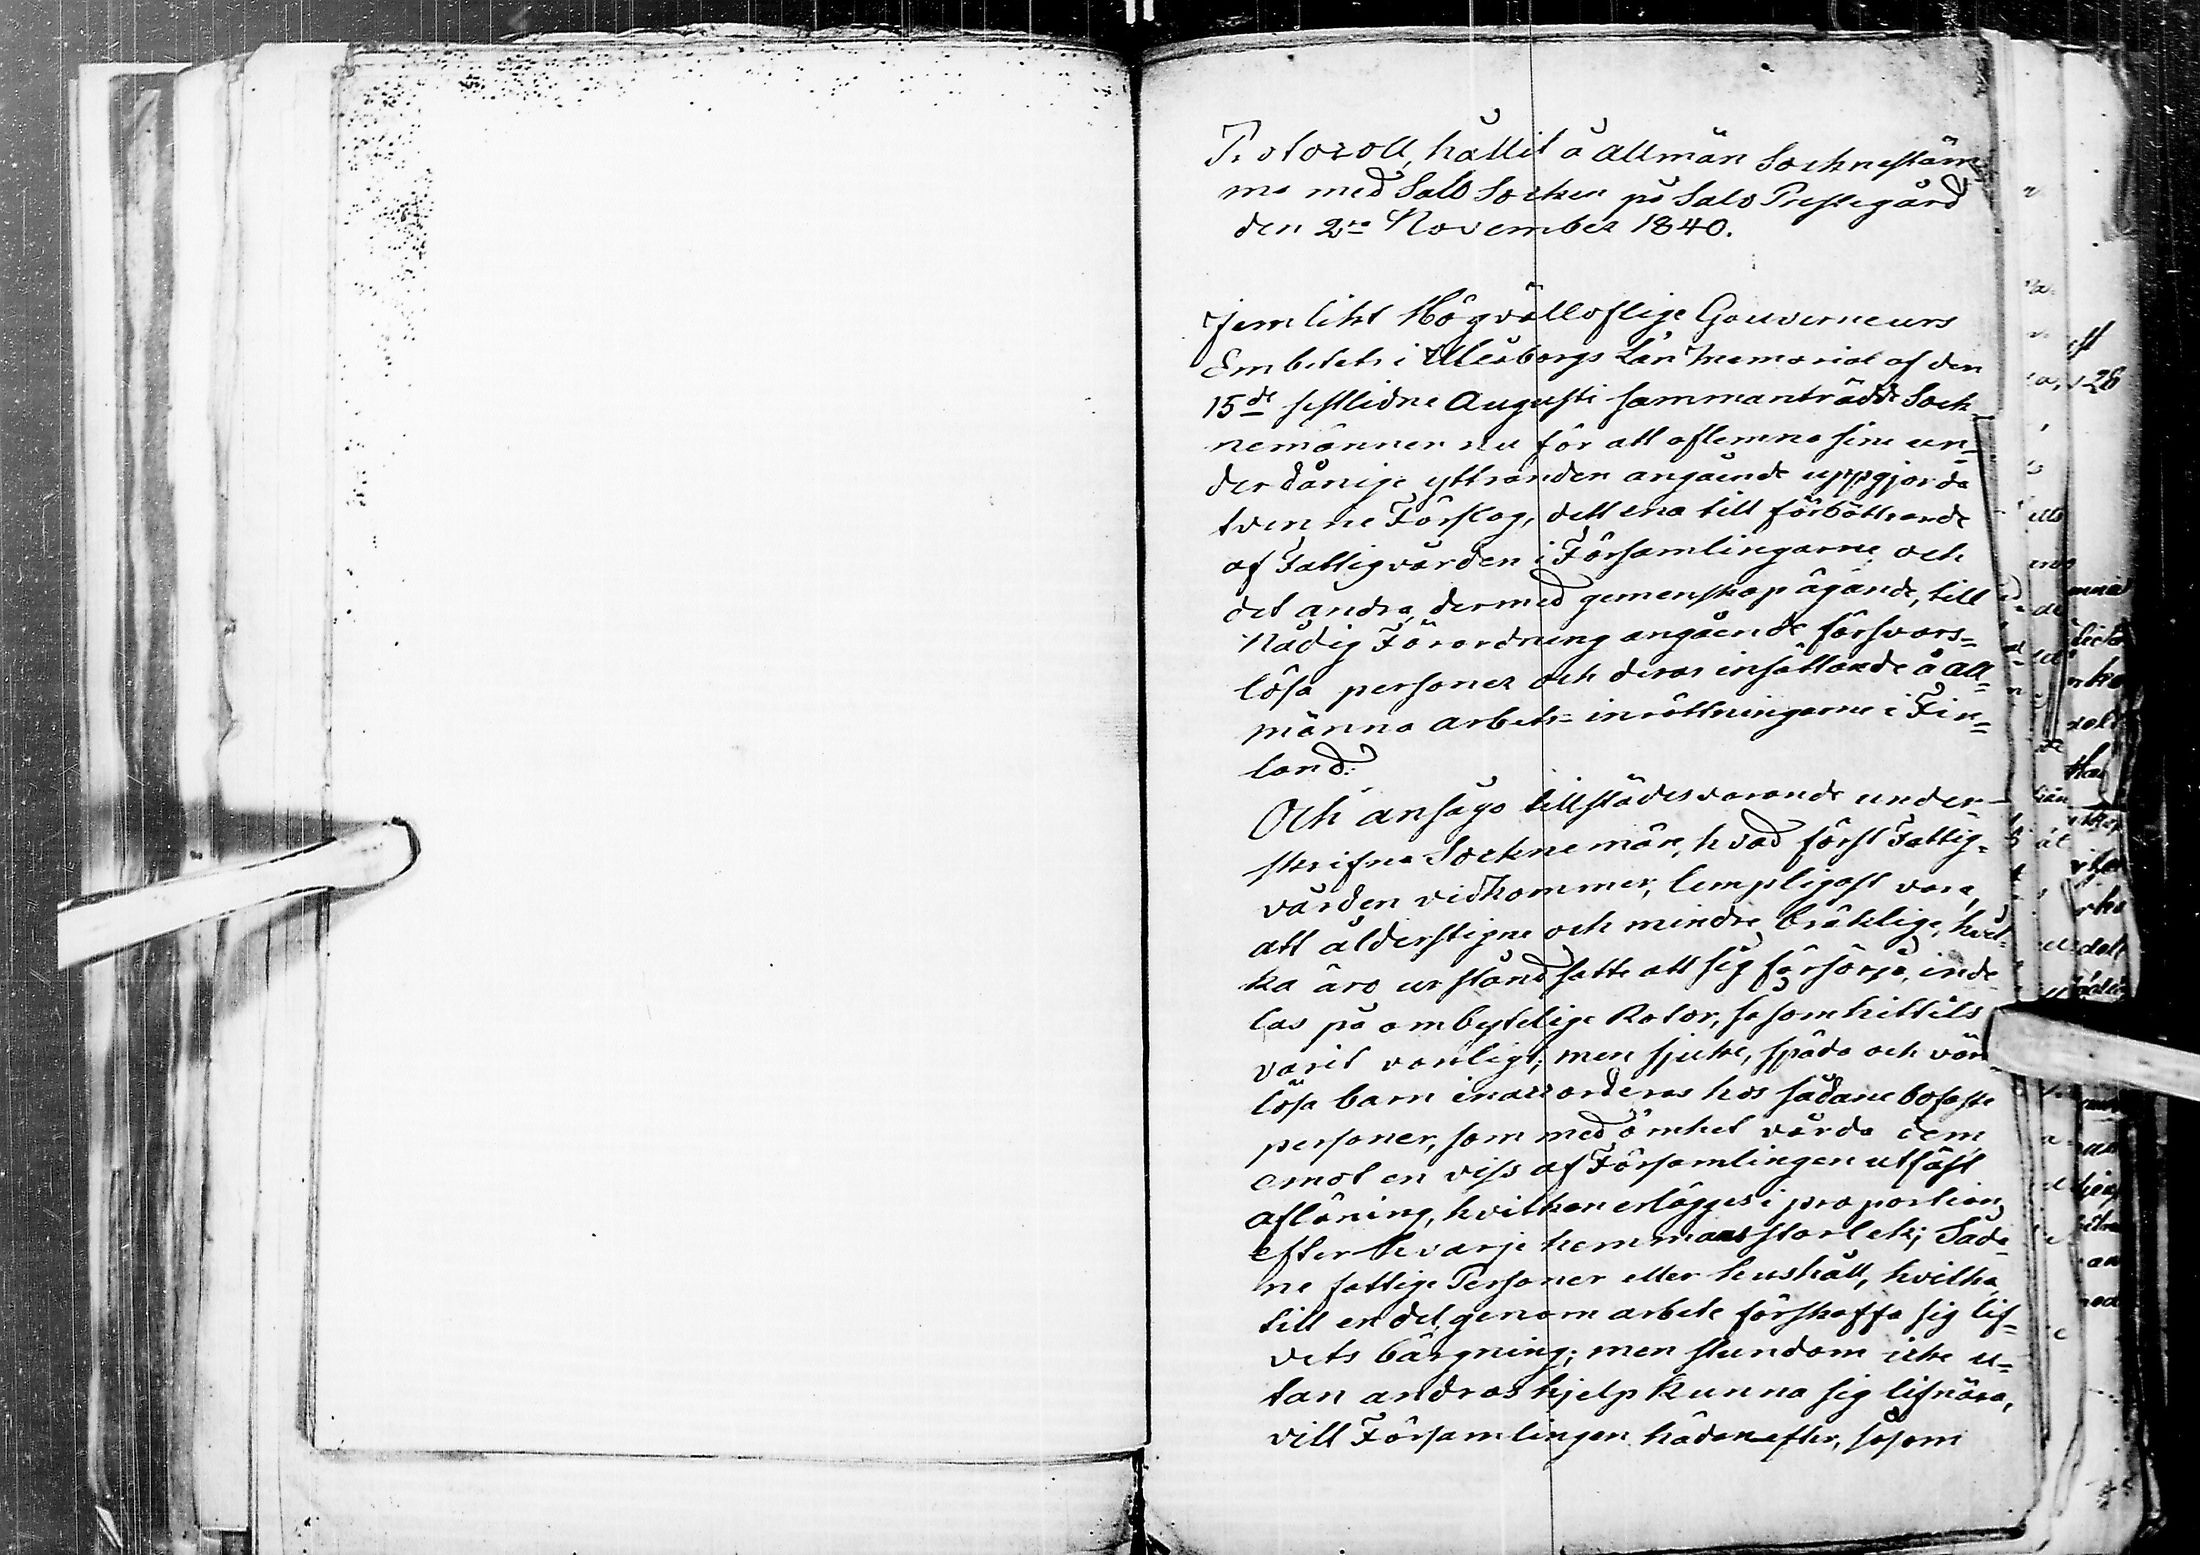 Protocoll, hållit å Allmän Sochnestäm-
ma med Salo Socken på Salo Prestegård
den 2ra November 1840.
Jemlikt Högvälloflige Gouverneurs
Embetets i Uleåborgs Län Memorial af den
15de sistlidne Augusti sammanträdde Sock-
nemännen nu för att aflemna sine un-
derdånige yttranden angående uppgjorda
tvenne Förslag, dett ena till förbättrande
af Fattigvården i Församlingarne och
det andra, dermed gemenskap ägande, till
Nådig Förordning angående försvars-
lösa personer och deras insättande å all-
männa arbets-inrättningarne i Fin-
land:
Och ansågo tillstädesvarande under-
skrifne Sockne män, hvad först Fattig-
vården vidkommer, lempligast vara,
att ålderstigne och mindre bräklige, hvil-
ka äro ur stånd satte att sig försörja, inde-
las på ombytelige Rotor, så som hittils
varit vanligt; men sjuke, späda och vård-
lösa barn inaccorderas hos sådane bofaste
personer, som med ömhet vårda dem
emot en viss af Församlingen utfäst
aflöning, hvilken erlägges i proportion
efter hvarje hemmans storlek; Såda-
ne fattige Personer eller hushåll, hvilka
till en del genom arbete förskaffa sig lif-
vets bärgning; men stundom icke u-
tan andras hjelp kunna sig lifnära,
vill Församlingen hädanefter, såsom